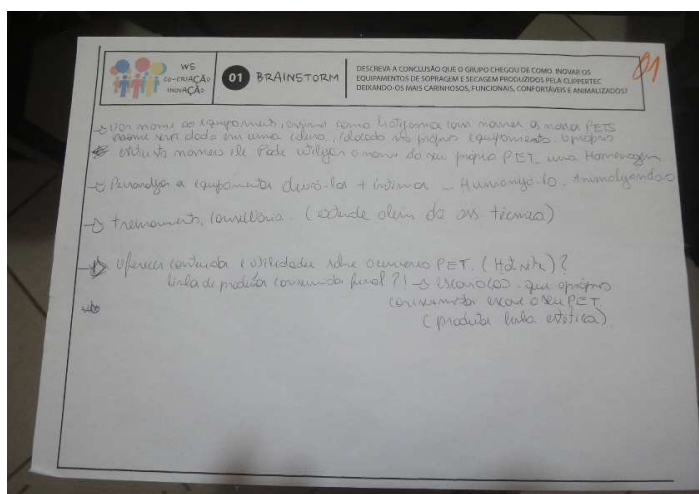 WS
CO-CRIAÇÃO
INOVAÇÃO
01 BRAINSTORM
DESCREVA A CONCLUSÃO QUE O GRUPO CHEGOU DE COMO INOVAR OS
EQUIPAMENTOS DE SOPRAGEM E SECAGEM PRODUZIDOS PELA CLIPPERTEC
DEIXANDO-OS MAIS CARINHOSOS, FUNCIONAIS, CONFORTÁVEIS E ANIMALIZADOS?
01
Dar nome ao equipamento, assim como batizamos com nomes os nossos PETS
nome será dado em uma coleira, colocado no próprio equipamento. O próprio
cliente nomeia ele Pode utilizar o nome do seu próprio PET, uma Homenagem
Personalizar o equipamento deixá-los + íntimos - Humanizá-lo. Animalizando
→ treinamento, consultoria. (estende além da ass. técnica)
→ Oferecer conteúdos e utilidades sobre o universo PET. (Hotsite)?
linha de produtos consumidor final?! → escovações que o próprio
consumidor escove o seu PET.
(produtos linha estética)